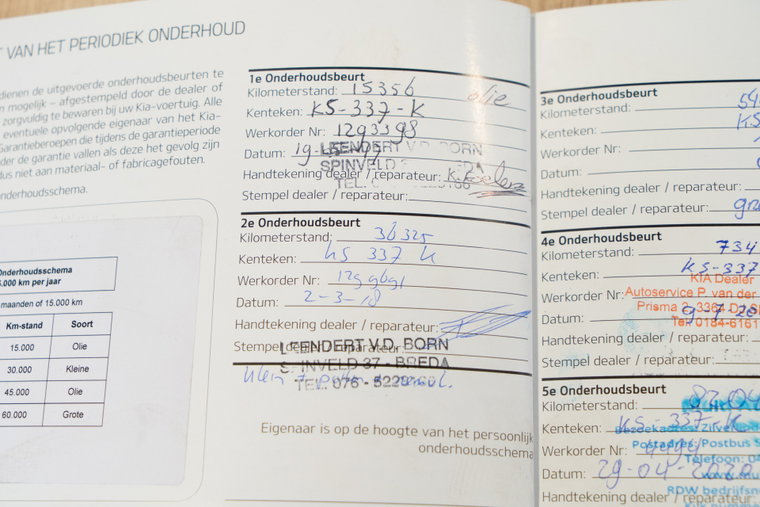 VAN HET PERIODIEK ONDERHOUD
dienen de uitgevoerde onderhoudsbeurten te
mogelijk – afgestempeld door de dealer of
zorgvuldig te bewaren bij uw Kia-voertuig. Alle
eventuele opvolgende eigenaar van het Kia-
Garantieberoepen die tijdens de garantieperiode
der de garantie vallen als deze het gevolg zijn
dus niet aan materiaal- of fabricagefouten.
onderhoudsschema.
Onderhoudsschema
5.000 km per jaar
maanden of 15.000 km
Km-stand Soort
15.000 Olie
30.000 Kleine
45.000 Olie
60.000 Grote
1e Onderhoudsbeurt
Kilometerstand: 15356 olie
Kenteken: KS-337-K
Werkorder Nr: 1293398
Datum: 19
LEENDERT V.D. BORN
SPINVELD BREDA
Handtekening dealer / reparateur:
TEL.
Stempel dealer / reparateur:
2e Onderhoudsbeurt
Kilometerstand: 36325
Kenteken: KS 337 K
Werkorder Nr:
Datum: 2-3-18
Handtekening dealer / reparateur:
Stempel dealer / reparateur:
LEENDERT V.D. BORN
SPINVELD 37 - BREDA
TEL. 076 -
klein
Eigenaar is op de hoogte van het persoonlijk
onderhoudsschema
3e Onderhoudsbeurt
Kilometerstand:
Kenteken: KS
Werkorder Nr:
Datum:
Handtekening dealer / reparateur:
Stempel dealer / reparateur:
4e Onderhoudsbeurt
Kilometerstand: 734
Kenteken: KS-337
KIA Dealer
Werkorder Nr:
Autoservice P. van der
Prisma 2, 3364 D
Datum: 9-7-20
Tel. 0184-6161
Handtekening dealer / reparateur:
Stempel dealer / reparateur:
5e Onderhoudsbeurt
Kilometerstand:
Kenteken: KS-337-K
Bezoekadres:
Postadres: Postbus
Werkorder Nr:
Telefoon: 04
Datum: 29-04-2020
RDW bedrijfsn
Handtekening dealer / reparateur:
KvK nummer